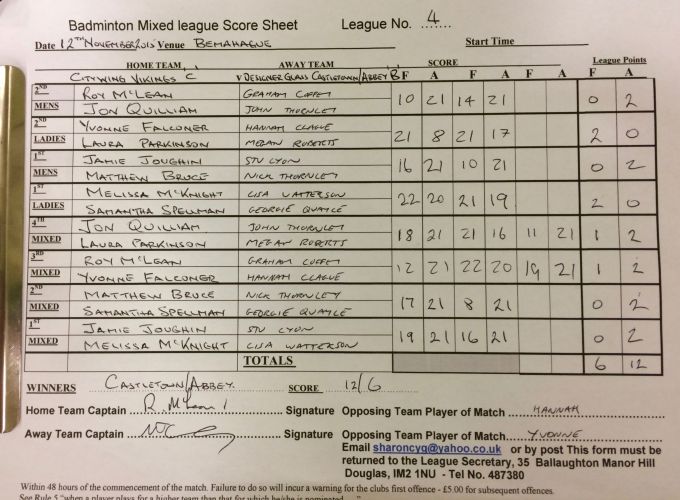 Badminton Mixed league Score Sheet League No. 4
Date 12TH NOVEMBER 2015 Venue BEMAHAGUE Start Time
HOME TEAM AWAY TEAM SCORE League Points
CITYWING VIKINGS C V DESIGNER GLASS CASTLETOWN/ABBEY B F A F A F A F A
2ND MENS ROY McLEAN GRAHAM CUFFEY 10 21 14 21 0 2
JON QUILLIAM JOHN THORNLEY
2ND LADIES YVONNE FALCONER HANNAH CLAGUE 21 8 21 17 2 0
LAURA PARKINSON MEGAN ROBERTS
1ST MENS JAMIE JOUGHIN STU LYON 16 21 10 21 0 2
MATTHEW BRUCE NICK THORNLEY
1ST LADIES MELISSA McKNIGHT LISA WATTERSON 22 20 21 19 2 0
SAMANTHA SPELLMAN GEORGIE QUAYLE
4TH MIXED JON QUILLIAM JOHN THORNLEY 18 21 21 16 11 21 1 2
LAURA PARKINSON MEGAN ROBERTS
3RD MIXED ROY McLEAN GRAHAM CUFFEY 12 21 22 20 19 21 1 2
YVONNE FALCONER HANNAH CLAGUE
2ND MIXED MATTHEW BRUCE NICK THORNLEY 17 21 8 21 0 2
SAMANTHA SPELLMAN GEORGIE QUAYLE
1ST MIXED JAMIE JOUGHIN STU LYON 19 21 16 21 0 2
MELISSA McKNIGHT LISA WATTERSON
TOTALS 6 12
WINNERS CASTLETOWN/ABBEY SCORE 12/6
Home Team Captain R. McLean Signature Opposing Team Player of Match HANNAH
Away Team Captain Signature Opposing Team Player of Match YVONNE
Email sharoncyg@yahoo.co.uk or by post This form must be
returned to the League Secretary, 35 Ballaughton Manor Hill
Douglas, IM2 1NU - Tel No. 487380
Within 48 hours of the commencement of the match. Failure to do so will incur a warning for the clubs first offence - £5.00 for subsequent offences.
See Rule 5 "when a player plays for a higher team than that for which he/she is nominated